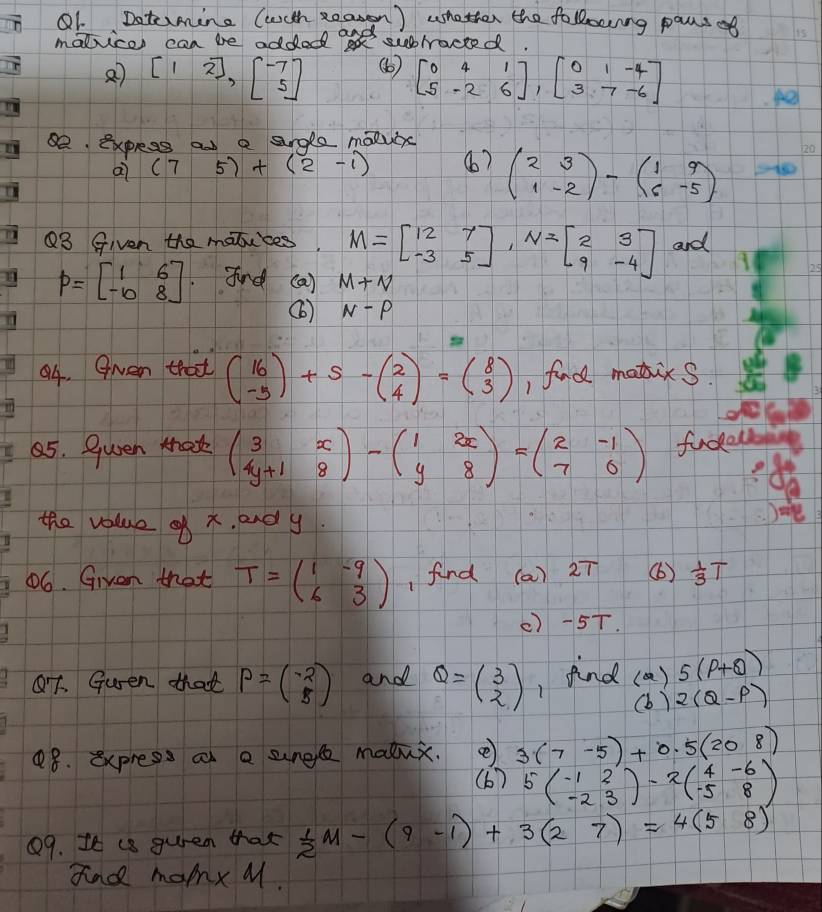 Q1. Determine (with reason) whether the following pairs of
matrices can be added and subtracted.
a) [1 2], [-7
5] (b) [0 4 1
5 -2 6], [0 1 -4
3 7 -6]
Q2. Express as a single matrix
a) (7 5) + (2 -1) (b) (2 3
1 -2) - (1 9
6 -5)
Q3 Given the matrices. M = [12 7
-3 5], N = [2 3
9 -4] and
P = [1 6
-10 8]. Find (a) M+N
(b) N-P
Q4. Given that (16
-5) + S - (2
4) = (8
3), find matrix S.
Q5. Given that (3 x
4y+1 8) - (1 2x
y 8) = (2 -1
7 0) find
the value of x and y.
Q6. Given that T = (1 -9
6 3), find (a) 2T (b) 1/3 T
c) -5T.
Q7. Given that P = (-2
5) and Q = (3
2), find (a) 5(P+Q)
(b) 2(Q-P)
Q8. Express as a single matrix. a) 3(7 -5) + 0.5(20 8)
(b) 5(-1 2
-2 3) - 2(4 -6
-5 8)
Q9. It is given that 1/2 M - (9 -1) + 3(2 7) = 4(5 8)
Find matrix M.